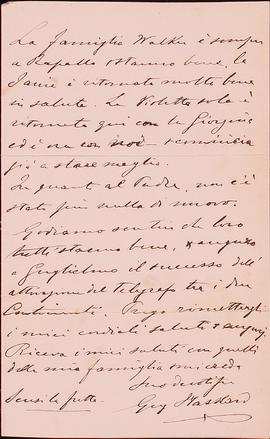 La famiglia Walker è sempre
a Rapallo e stanno bene, la
Janie è ritornata molto bene
in salute. La Violetta sola è
ritornata qui con la Giorgina
ed è ora con noi e comincia
già a stare meglio.
In quanto al Padre, non c'è
stato più nulla di nuovo.
Godiamo sentire che loro
tutti stanno bene, e auguro
a Guglielmo il successo dell'
attivazione del telegrafo tra i due
Continenti. Prego rimettergli
i miei cordiali saluti e auguri.
Riceva i miei saluti con quelli
della mia famiglia mi creda
Suo devotis
Scusi la fretta. Guy